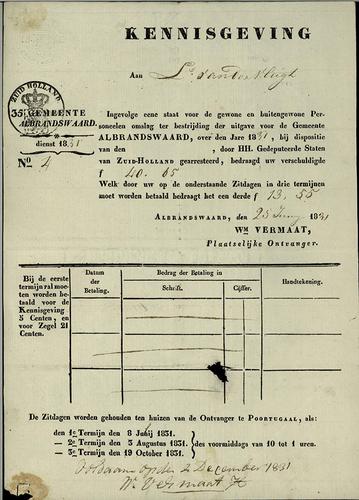 KENNISGEVING
Aan
ZUID HOLLAND
35
GEMEENTE
ALBRANDSWAARD.
dienst 1831
No 4
Ingevolge eene staat voor de gewone en buitengewone Per-
soneelen omslag ter bestrijding der uitgave voor de Gemeente
ALBRANDSWAARD, over den Jare 1831, bij dispositie
van den , door HH. Gedeputeerde Staten
van ZUID-HOLLAND gearresteerd, bedraagd uw verschuldigde
f 40.65
Welk door uw op de onderstaande Zitdagen in drie termijnen
moet worden betaald bedraagt het een derde f 13.55
ALBRANDSWAARD, den 25 1831
WM VERMAAT,
Plaatselijke Ontvanger.
Bij de eerste
termijn zal moe-
ten worden be-
taald voor de
Kennisgeving
5 Centen, en
voor Zegel 21
Centen.
Datum
der
Betaling.
Bedrag der Betaling in
Schrift.
Cijffer.
Handteekening.
De Zitdagen worden gehouden ten huizen van de Ontvanger te POORTUGAAL, als:
den 1e Termijn den 8 Julij 1831.
— 2e Termijn den 3 Augustus 1831. des voormiddags van 10 tot 1 uren.
— 3e Termijn den 19 October 1831.
Voldaan op den 2 December 1831
Wm Vermaat